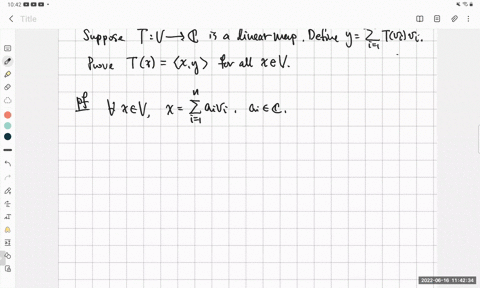 10:42
Title
Suppose T: V → ℂ is a linear map. Define y = ∑_{i=1} T(vi) vi.
Prove T(x) = ⟨x, y⟩ for all x ∈ V.
pf ∀ x ∈ V, x = ∑_{i=1}^{n} ai vi, ai ∈ ℂ.
2022-06-16 11:42:34